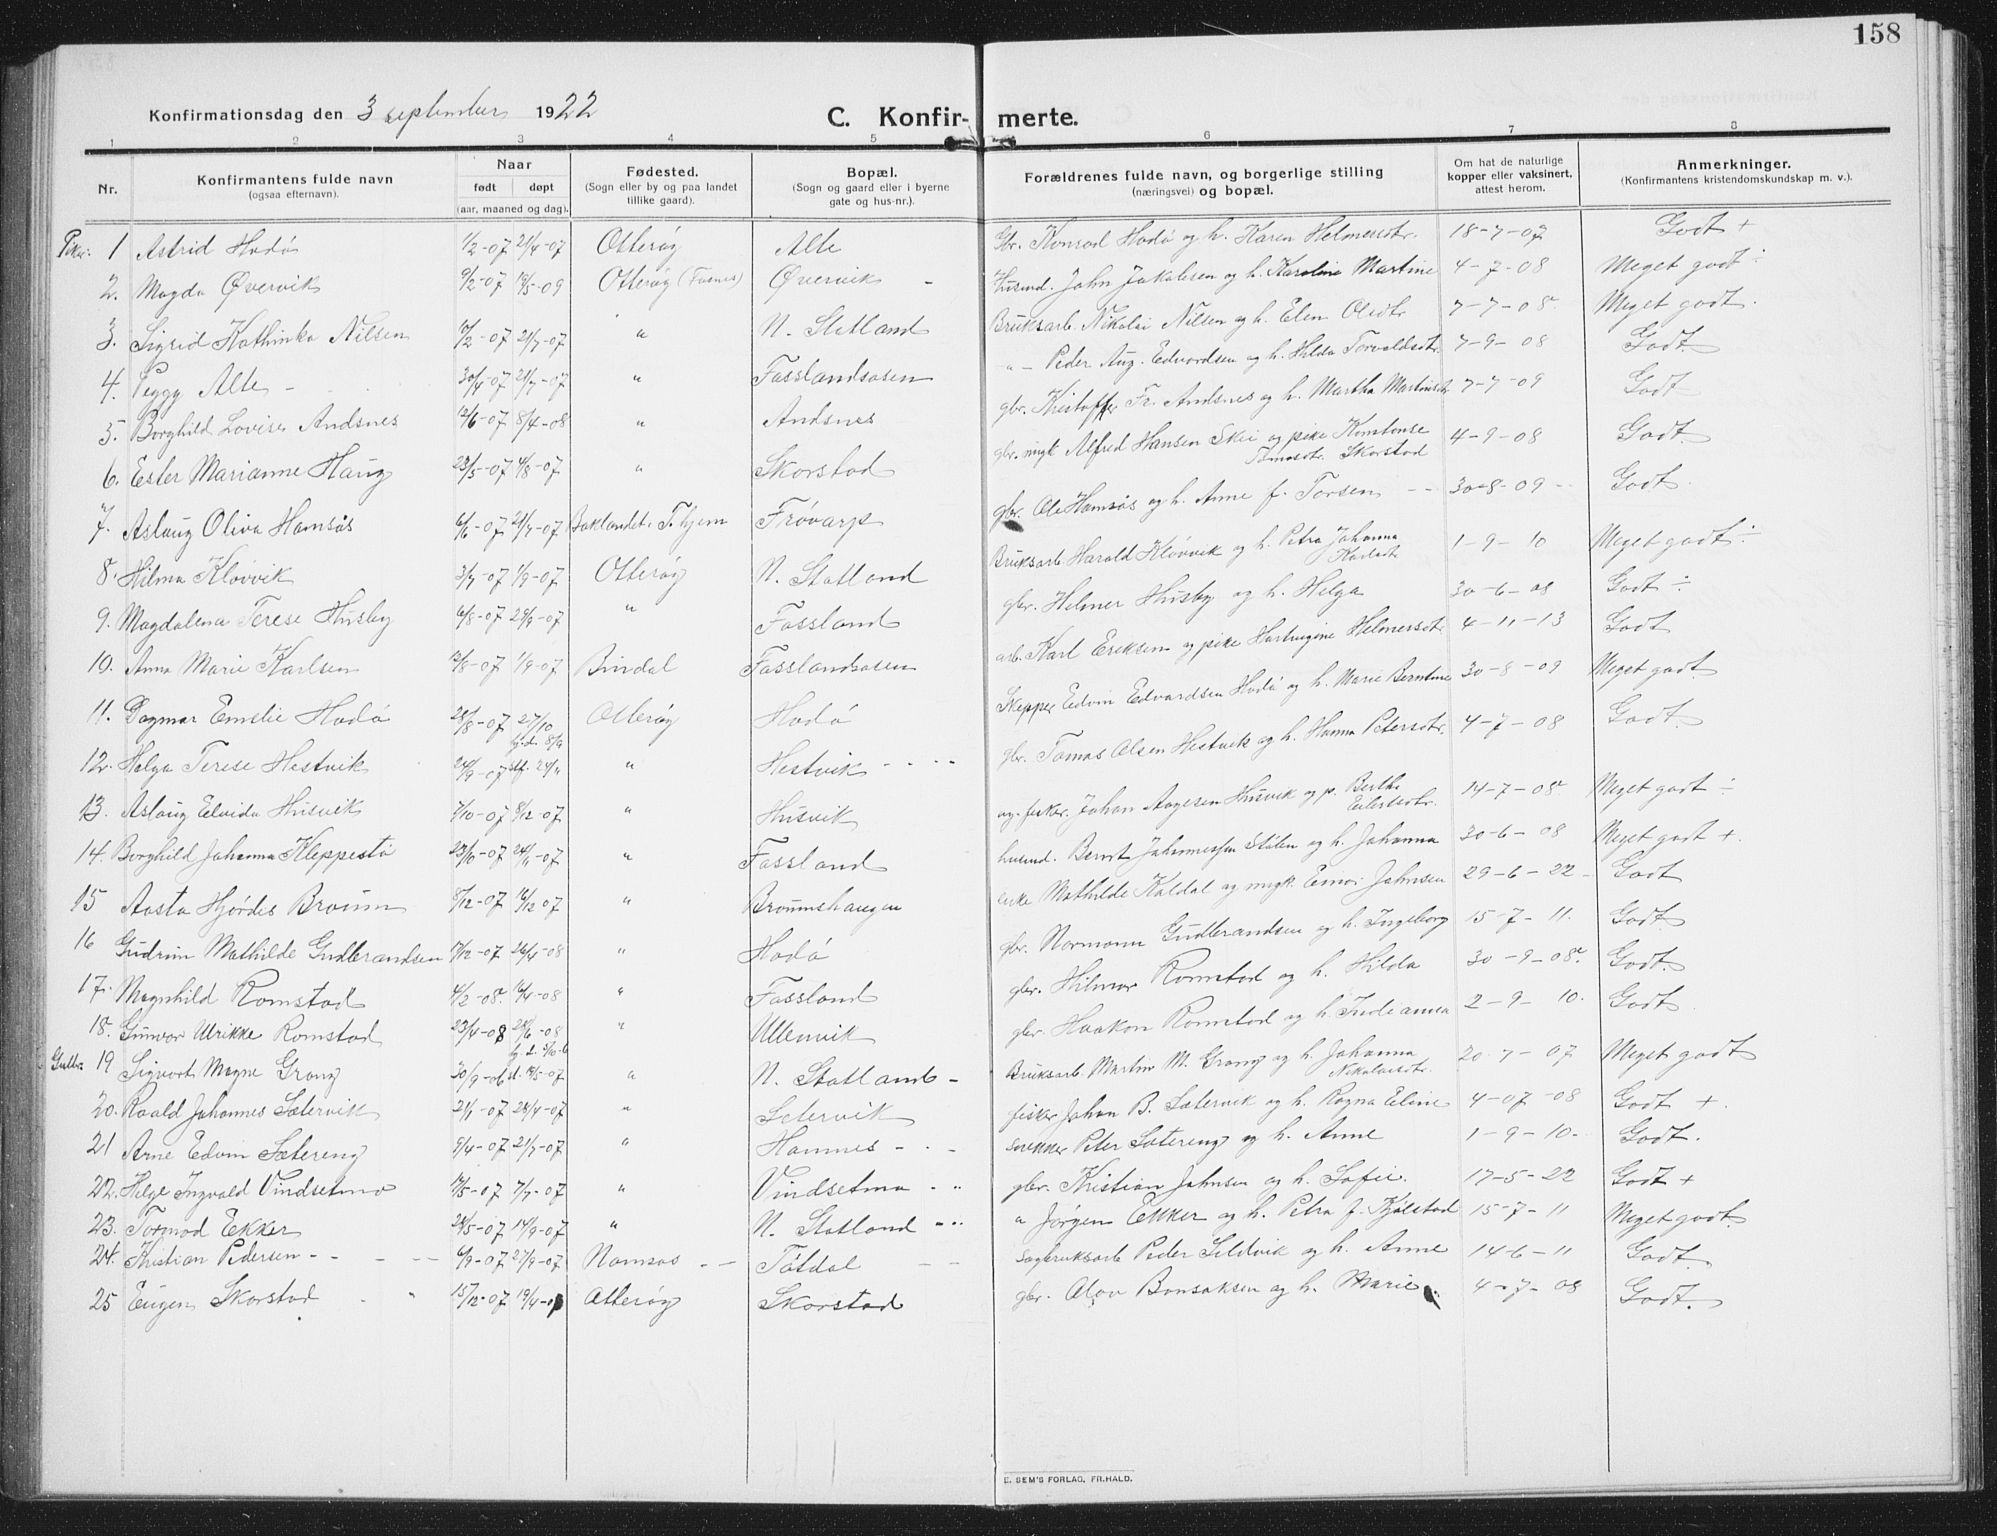 158
Konfirmationsdag den 3 september 1922
C. Konfir- merte.
1 2 3 4 5 6 7 8
Nr.
Konfirmantens fulde navn
(ogsaa efternavn).
Naar
født døpt
(aar, maaned og dag).
Fødested.
(Sogn eller by og paa landet
tillike gaard).
Bopæl.
(Sogn og gaard eller i byerne
gate og hus-nr.).
Forældrenes fulde navn, og borgerlige stilling
(næringsvei) og bopæl.
Om hat de naturlige
kopper eller vaksinert,
attest herom.
Anmerkninger.
(Konfirmantens kristendomskundskap m. v.).
Piker: 1 Astrid Hodø 1/2-07 21/4-07 Otterøy Alte Gbr. Konrad Hodø og h. Karen Helmersdtr. 18-7-07 Godt +
2. Magda Øvervik 9/2-07 19/5-09 Otterøy (Fosnes) Øvervik - Husmd. John Jakobsen og h. Karoline Martine 4-7-08 Meget godt ÷
3. Sigrid Kathinka Nilsen 17/2-07 21/7-07 " N. Statland Bruksarb. Nikolai Nilsen og h. Elen Olsdtr 7-7-08 Meget godt.
4. Peggy Alte - 30/4-07 21/7-07 " Fasslandsosen - " - Peder Aug. Edvardsen og h. Hilda Torvaldsdtr. 7-9-08 Godt.
5. Borghild Lovise Andsnes 12/6-07 8/4-08 " Andsnes gbr. Kristoffer Fr. Andsnes og h. Martha Martinsdtr 7-7-09 Godt
6. Ester Marianne Haug 23/5-07 4/8-07 " Skorstad gbr. ungk Alfred Hansen Skei og pike Konstanse
Tomasdtr. Skorstad 4-9-08 Godt.
7. Aslaug Oliva Hamsøs 6/6-07 21/7-07 Baklandet i T.hjem Frøvarp gbr. Ole Hamsøs og h. Anne f. Torsen - - 30-8-09 - Godt.
8. Hilma Kløvvik 3/7-07 1/9-07 Otterøy N. Statland Bruksarb. Harald Kløvvik og h. Petra Johanna
Karlsdtr 1-9-10 Meget godt ÷
9. Magdalena Terese Husby 6/8-07 29/9-07 " Fossland gbr. Helmer Husby og h. Helga 30-6-08 Godt ÷
10. Anna Marie Karlsen 12/8-07 1/9-07 Bindal Fasslandsosen arb. Karl Eriksen og pike Hartvigine Helmersdtr 4-11-13 Godt
11. Dagmar Emelie Hodø 28/8-07 27/10 Otterøy Hodø Skepper Edvin Edvardsen Hodø og h. Marie Berntine 30-8-09 Meget godt.
12. Helga Terese Hestvik 24/9-07 hj.d. 8/9 stf. 24/11 " Hestvik - - - - gbr. Tomas Olsen Hestvik og h. Hanna Petersdtr. 4-7-08 Godt.
13. Aslaug Elvida Husvik 7/10-07 8/12-07 " Husvik ug. fisker. Johan Aagesen Husvik og p. Berthe
Edertsdtr. 14-7-08 Meget godt ÷
14. Borghild Johanna Kleppestø 23/10-07 24/11-07 " Fossland husmd. Bernt Johannessen Stølen og h. Johanna 30-6-08 Meget godt +.
15 Aasta Hjørdis Broum 8/12-07 16/12 07 " Broumshaugen enke Mathilde Kaldal og ungk. Johnsen 29-6-22 - Godt
16 Gudrun Mathilde Gudbrandsen 17/12-07 26/4-08 " Hodø gbr. Normann Gudbrandsen og h. Ingeborg 15-7-11. Godt.
17. Magnhild Romstad 4/2-08. 16/4-08 " Fossland gbr. Hilmar Romstad og h. Hilda 30-9-08. Godt.
18. Gunvor Ulrikke Romstad 23/4-08 28/6-08 " Ullenvik gbr. Haakon Romstad og h. Indianna 2-9-10. Godt
Gutter 19 Sigvart Magne Grong 30/9-06 hj.d. 5/10-6 st. 19/5-07 " N. Statland - Bruksarb. Martin M. Grong og h. Johanna
Nikolaisdtr. 20-7-07 Meget godt
20. Roald Johannes Sætervik 21/1-07 28/4-07 " Setervik fisker Johan B. Sætervik og h. Ragna Eline 4-07-08 Godt +.
21 Arne Edvin Sætereng 9/4-07 21/7-07 " Hamnes - - snekker Peter Sætereng og h. Anne 1-9-10. Godt.
22. Helge Ingvald Vindsetmo 19/5-07 7/7-07 " Vindsetmo - " gbr. Kristian Johnsen og h. Sofie. 17-5-22 Godt +
23. Tormod Ekker 28/5-07 14/9-07 " N. Statland - " " Jørgen Ekker og h. Petra f. Kjølstad 15-7-11 Meget godt.
24. Kristian Pedersen - - - - 6/9-07 27/9-07 Namsos - - Tøtdal - - Sagbruksarb Peder Seldvik og h. Anne 14-6-11 Godt.
25 Eugen Skorstad 15/12-07 19/4-08 Otterøy Skorstad gbr. Olov Bonsaksen og h. Marie. 4-7-08 Godt.
E. SEM'S FORLAG, FR.HALD.